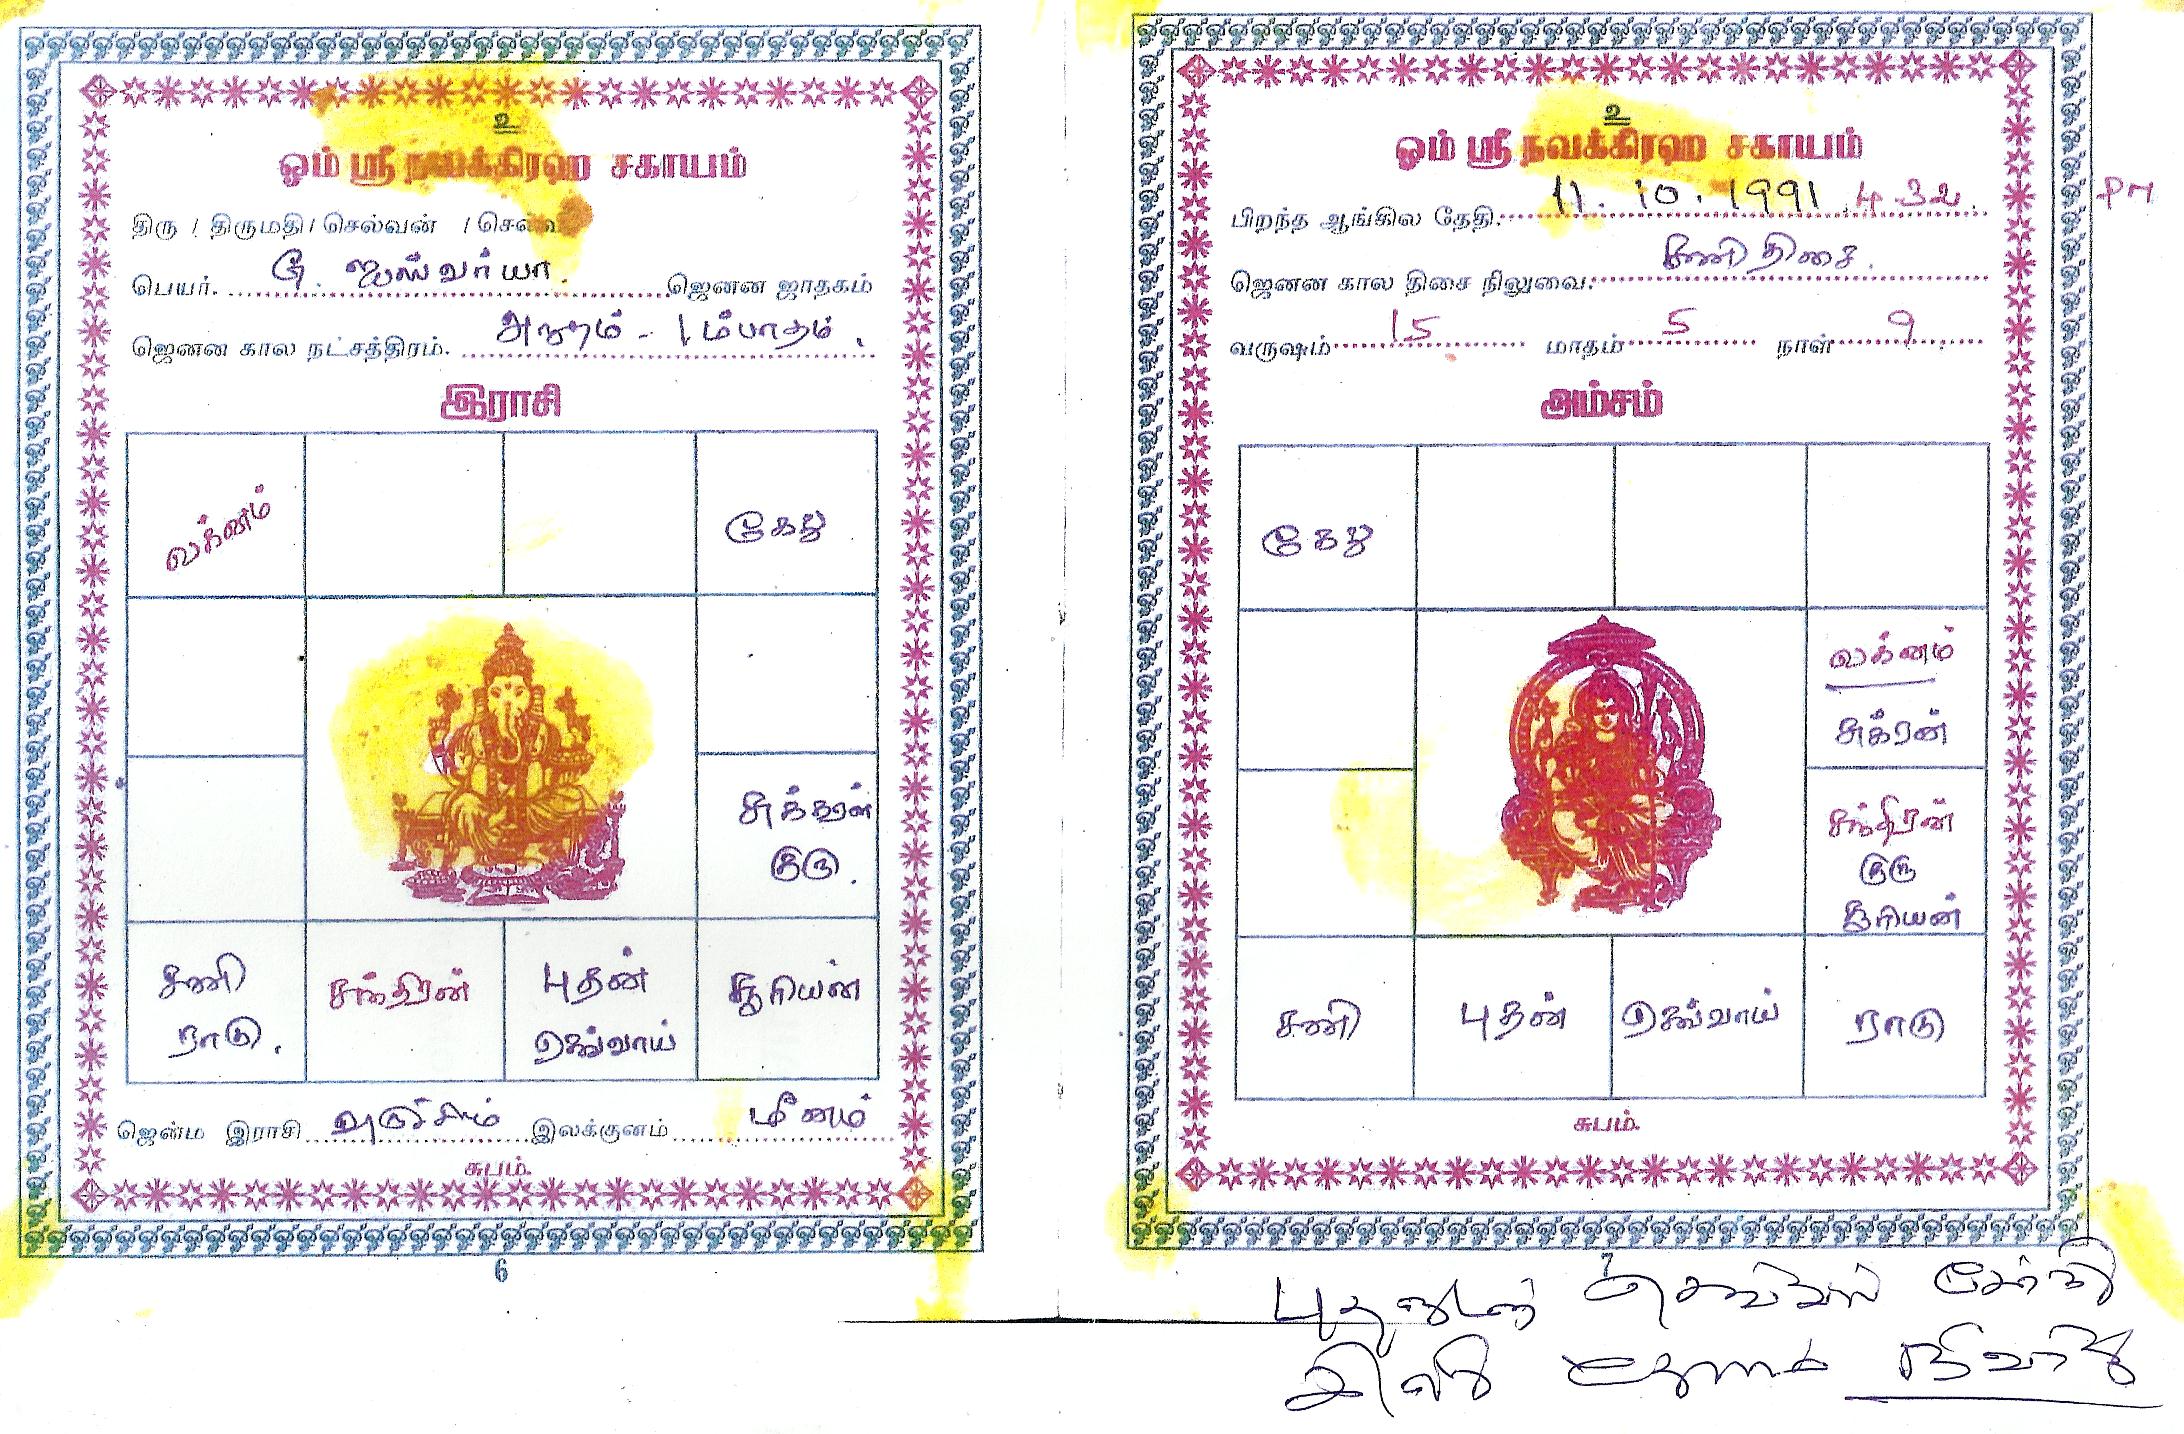 உ
ஓம் ஸ்ரீ நவக்கிரஹ சகாயம்
திரு / திருமதி / செல்வன் / செல்வி
பெயர். ஐஸ்வர்யா. ஜெனன ஜாதகம்
ஜெனன கால நட்சத்திரம். அநுசம் - 1ம்பாதம்.
இராசி
லக்னம்
கேது
சுக்கிரன்
குரு.
சனி
ராகு.
சந்திரன்
புதன்
செவ்வாய்
சூரியன்
ஜென்ம இராசி இலக்குனம் மீனம்
சுபம்.
6
உ
ஓம் ஸ்ரீ நவக்கிரஹ சகாயம்
பிறந்த ஆங்கில தேதி: 11.10.1991 4.32 PM
ஜெனன கால திசை நிலுவை: சனி திசை.
வருஷம் 15 மாதம் 5 நாள் 9
அம்சம்
கேது
லக்னம்
சுக்ரன்
சந்திரன்
குரு
சூரியன்
சனி
புதன்
செவ்வாய்
ராகு
சுபம்.
7
புதனுடன் செவ்வாய்